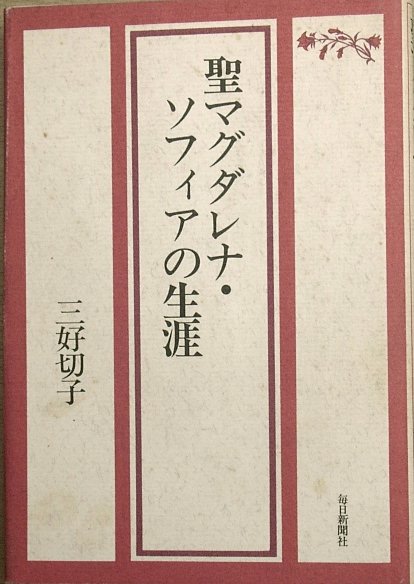 聖マグダレナ・
ソフィアの生涯
三好切子
毎日新聞社